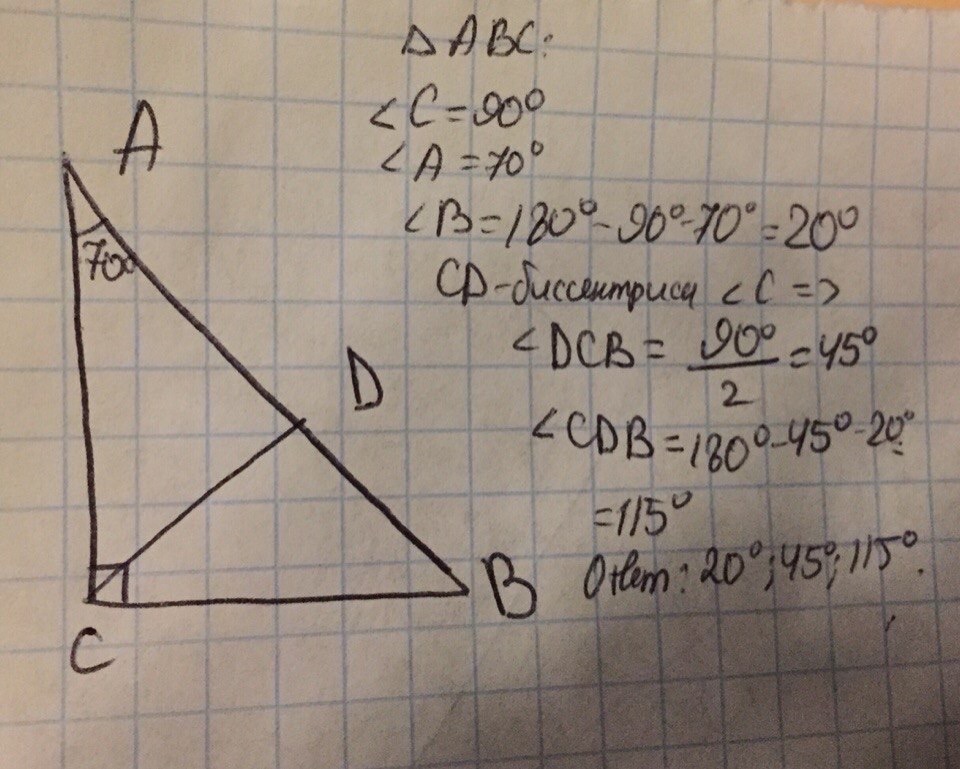 Δ ABC:
∠C=90°
∠A=70°
∠B=180°-90°-70°=20°
CD-биссектриса ∠C =>
∠DCB= 90°/2 =45°
∠CDB=180°-45°-20°
=115°
Ответ: 20°;45°;115°.
A
70°
D
B
C